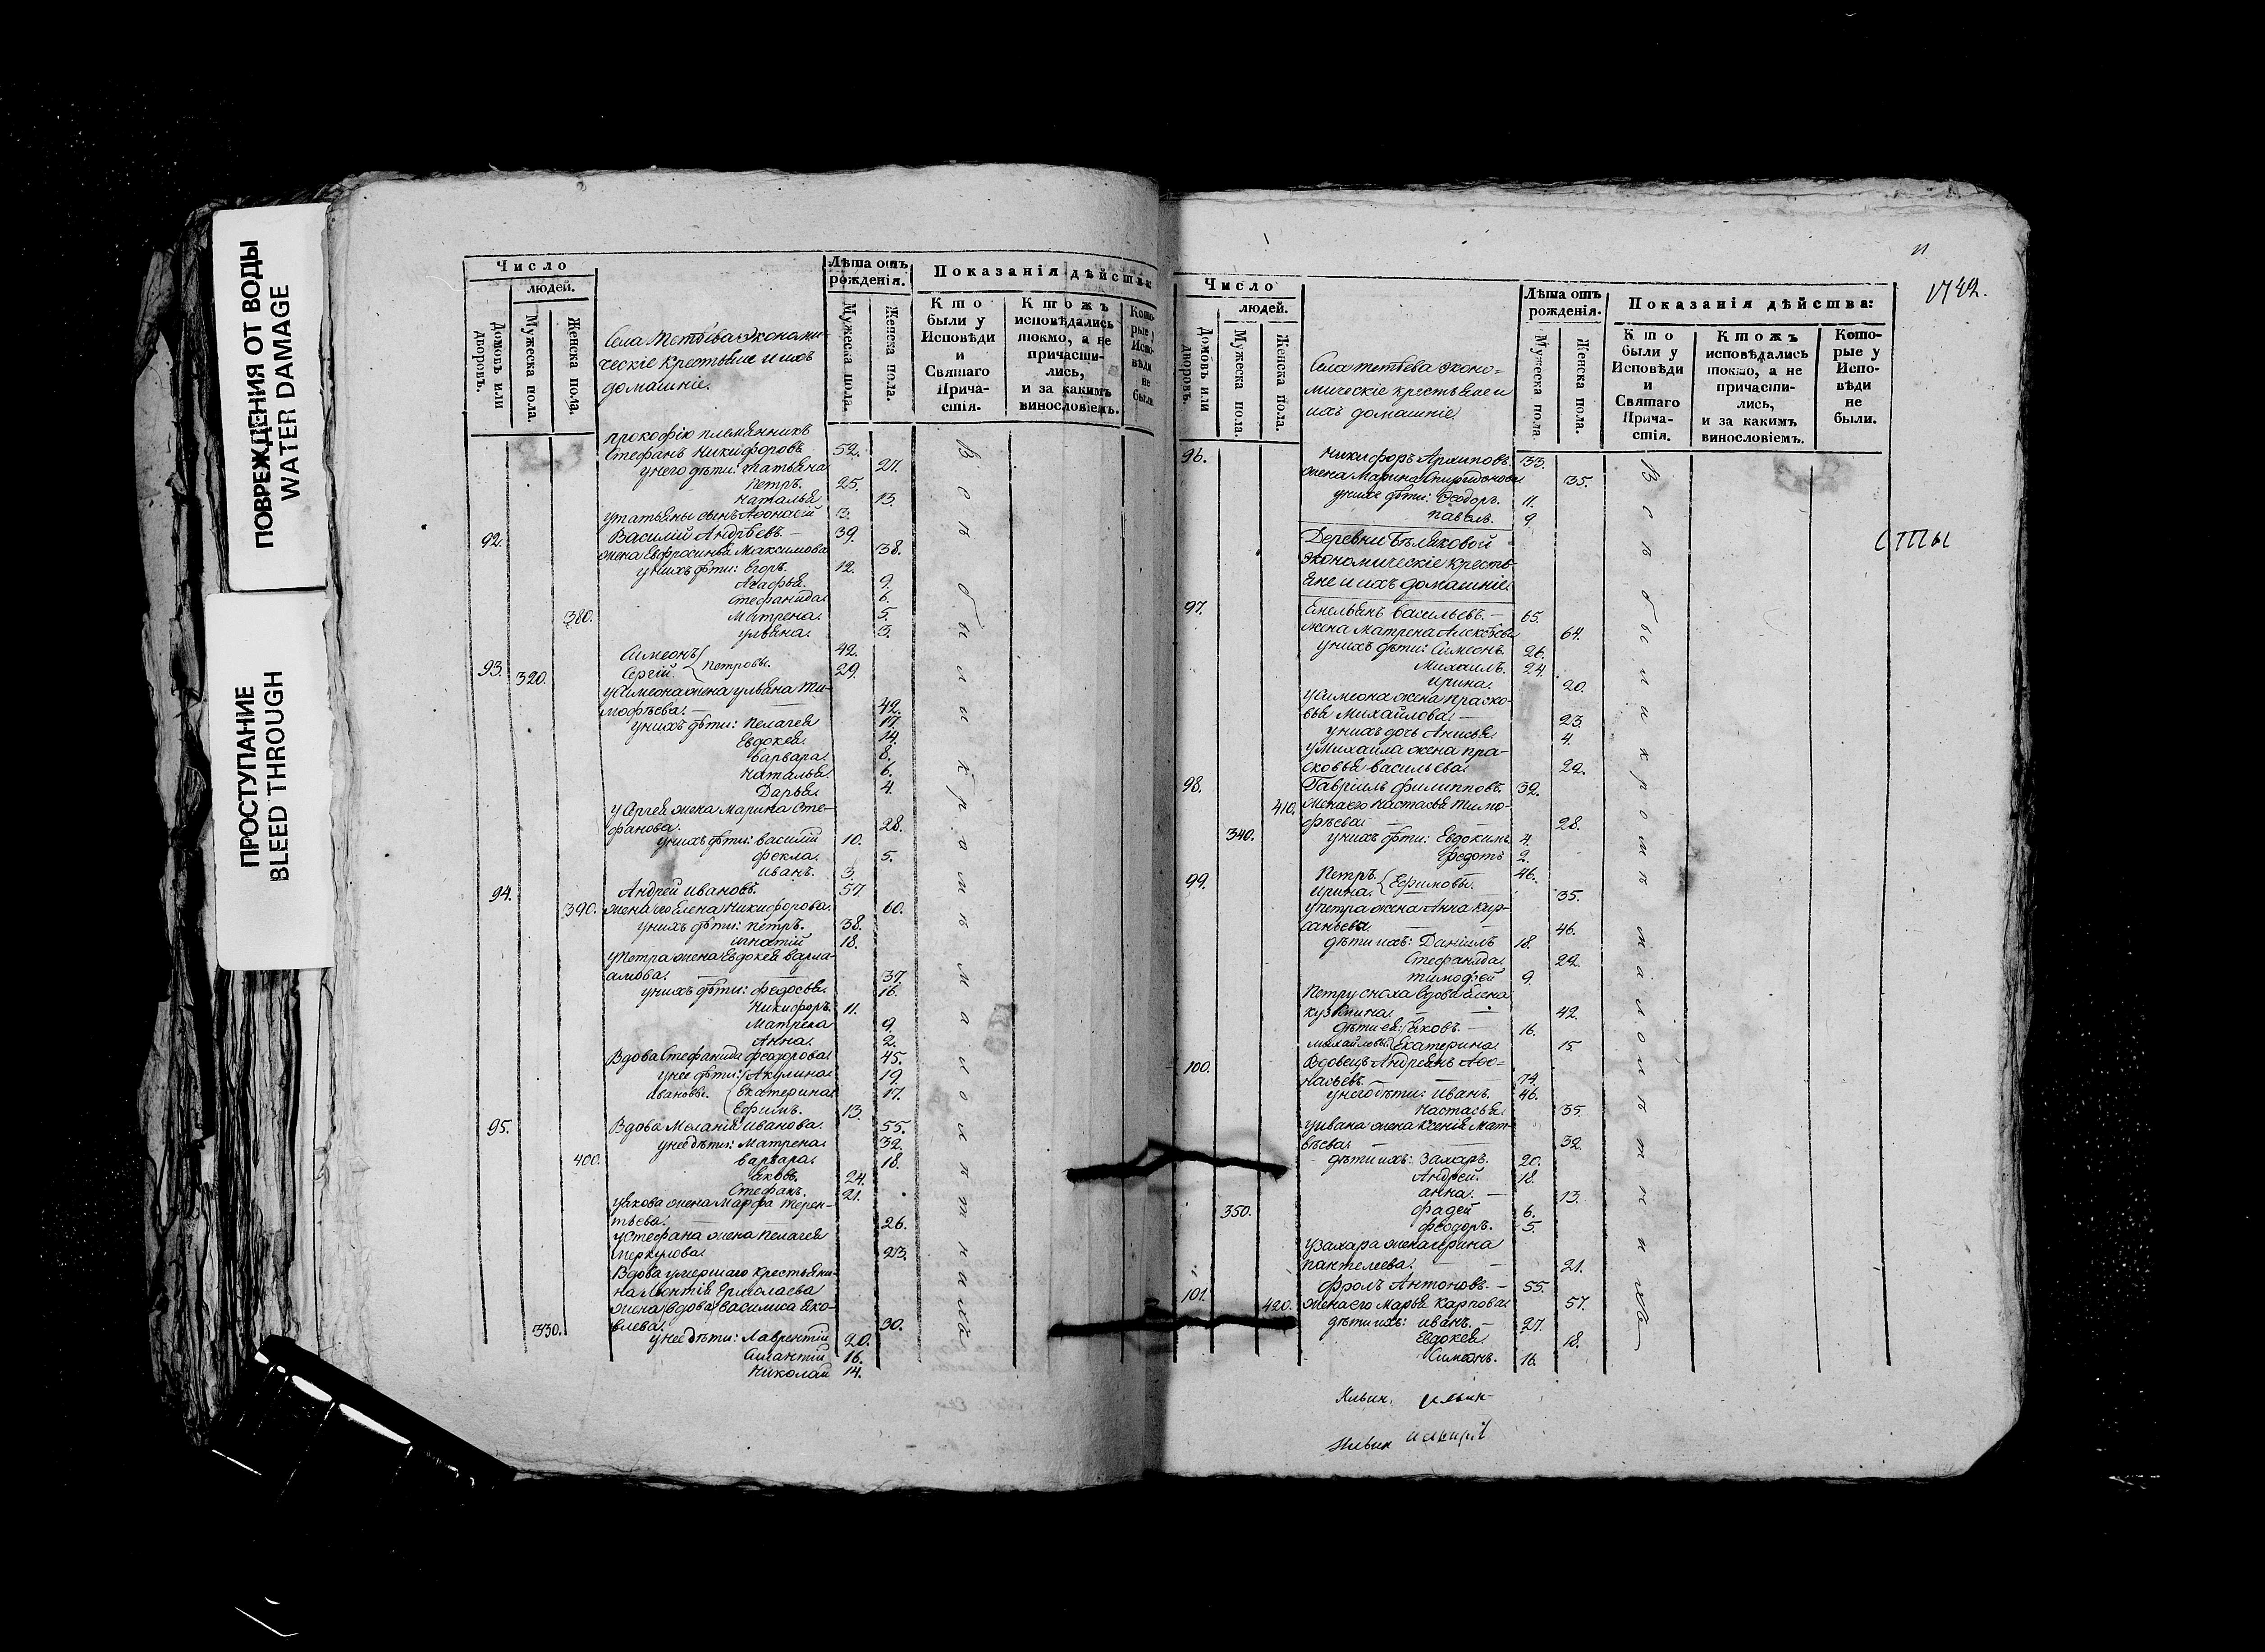 ПОВРЕЖДЕНИЯ ОТ ВОДЫ
WATER DAMAGE
ПРОСТУПАНИЕ
BLEED THROUGH
Число
людей.
Домовъ или дворовъ.
Мужеска пола.
Женска пола.
Села Тетѣева Экономи-
ческіе крестьяне и ихъ
домашніе.
Лѣта отъ рожденія.
Мужеска пола.
Женска пола.
Показанія дѣйства
Кто были у Исповѣди и Святаго Прича-стія.
Ктожъ исповѣдались токмо, а не причасти-лись, и за какимъ винословіемъ.
Кото-рые у Испо-вѣди не были
Прокофію племянникъ
Стефанъ Никифоровъ 52.
у него дѣти: Татьяна 27.
Петръ. 25.
Наталья 13.
у татьяны сынъ Афонасій 3.
92. Василій Андрѣевъ — 39.
жена Евфросинья Максимова 38.
у нихъ дѣти: Егоръ. 12.
Агафья. 9.
Стефанида. 6.
380. Матрена. 5.
Ульяна. 3.
Симеонъ 42.
93. 320. Сергій. Петровы. 29.
у Симеона жена ульяна Ти-
мофѣева. — 42.
у нихъ дѣти: Пелагея 17.
Евдокея. 14.
Варвара. 8.
Наталья. 6.
Дарья. 4.
у Сергея жена Марина Сте-
фанова. 28.
у нихъ дѣти: Василій 10.
Фекла. 5.
Иванъ. 3.
94. Андрей Ивановъ. 57
390. жена его Елена Никифорова. 60.
у нихъ дѣти: Петръ. 38.
Игнатій 18.
у Петра жена Евдокея Варла-
амова. — 37.
у нихъ дѣти: Федосья. 16.
Никифоръ. 11.
Матрена 9.
Анна. 2.
Вдова Стефанида Феодорова. 45.
у нее дѣти: Акулина 19.
Ивановы. Екатерина 17.
Ефимъ. 13.
95. Вдова Меланія Иванова. 55.
у нее дѣти: Матрена. 32.
400. Варвара. 18.
Яковъ. 24.
Стефанъ. 21.
у Якова жена Марфа Терен-
тьева. — 26.
у Стефана жена Пелагея
Меркулова. 23.
Вдова умершаго крестьяни-
на Леонтія Ермолаева
жена вдова Василиса Яко-
влева. 30.
330. у нее дѣти: Лаврентій 20.
16.
Николай 14.
Всѣ были крома малолѣтнихъ
Число
людей.
Домовъ или дворовъ.
Мужеска пола.
Женска пола.
Села тетѣева Эконо-
мическіе крестьяне и
ихъ домашніе
Лѣта отъ рожденія.
Мужеска пола.
Женска пола.
Показанія дѣйства:
Кто были у Исповѣди и Святаго Прича-стія.
Ктожъ исповѣдались токмо, а не причасти-лись, и за какимъ винословіемъ.
Кото-рые у Испо-вѣди не были.
96. Никифоръ Архиповъ. 33.
жена Марина Спиридонова 35.
у нихъ дѣти: Феодоръ. 11.
Павелъ. 9.
Деревни Бѣляковой
экономическіе кресть-
яне и ихъ домашніе.
97. Емельянъ Васильевъ. — 65.
жена Матрена Алексѣева 64.
у нихъ дѣти: Симеонъ. 26.
Михаилъ. 24.
Ирина. 20.
у Симеона жена Праско-
вья Михайлова. — 23.
у нихъ дочь Анисья. 4.
у Михаила жена Пра-
сковья Васильева. 22.
98. Гавріилъ Филипповъ. 32.
410. жена его Настасья Тимо-
фѣева. — 28.
340. у нихъ дѣти: Евдокимъ 4.
Федотъ 2.
99. Петръ. 46.
Ирина. Ефимовы. 35.
у петра жена Анна Кир-
саньева. — 46.
дѣти ихъ: Даніилъ 18.
Стефанида. 22.
Тимофей 9.
Петру сноха вдова Елена
Кузмина. — 42.
дѣти ея: Яковъ. — 16.
Михайловы. Екатерина. 15.
100. Вдовецъ Андреянъ Афо-
насьевъ. — 74.
у него дѣти: Иванъ. 46.
Настасья. 35.
у ивана жена Ксенія Мат-
вѣева. — 32.
дѣти ихъ: Захаръ. 20.
Андрей. 18.
анна. — 13.
350. Фадей 6.
Феодоръ. 5.
у Захара жена Ирина
Пантелеева. — 21.
101. Фролъ Антоновъ. — 55.
420. жена его Марья Карпова 57.
дѣти ихъ: Иванъ. — 27.
Евдокея. 18.
Симеонъ. 16.
Всѣ были кромѣ малолѣтнихъ